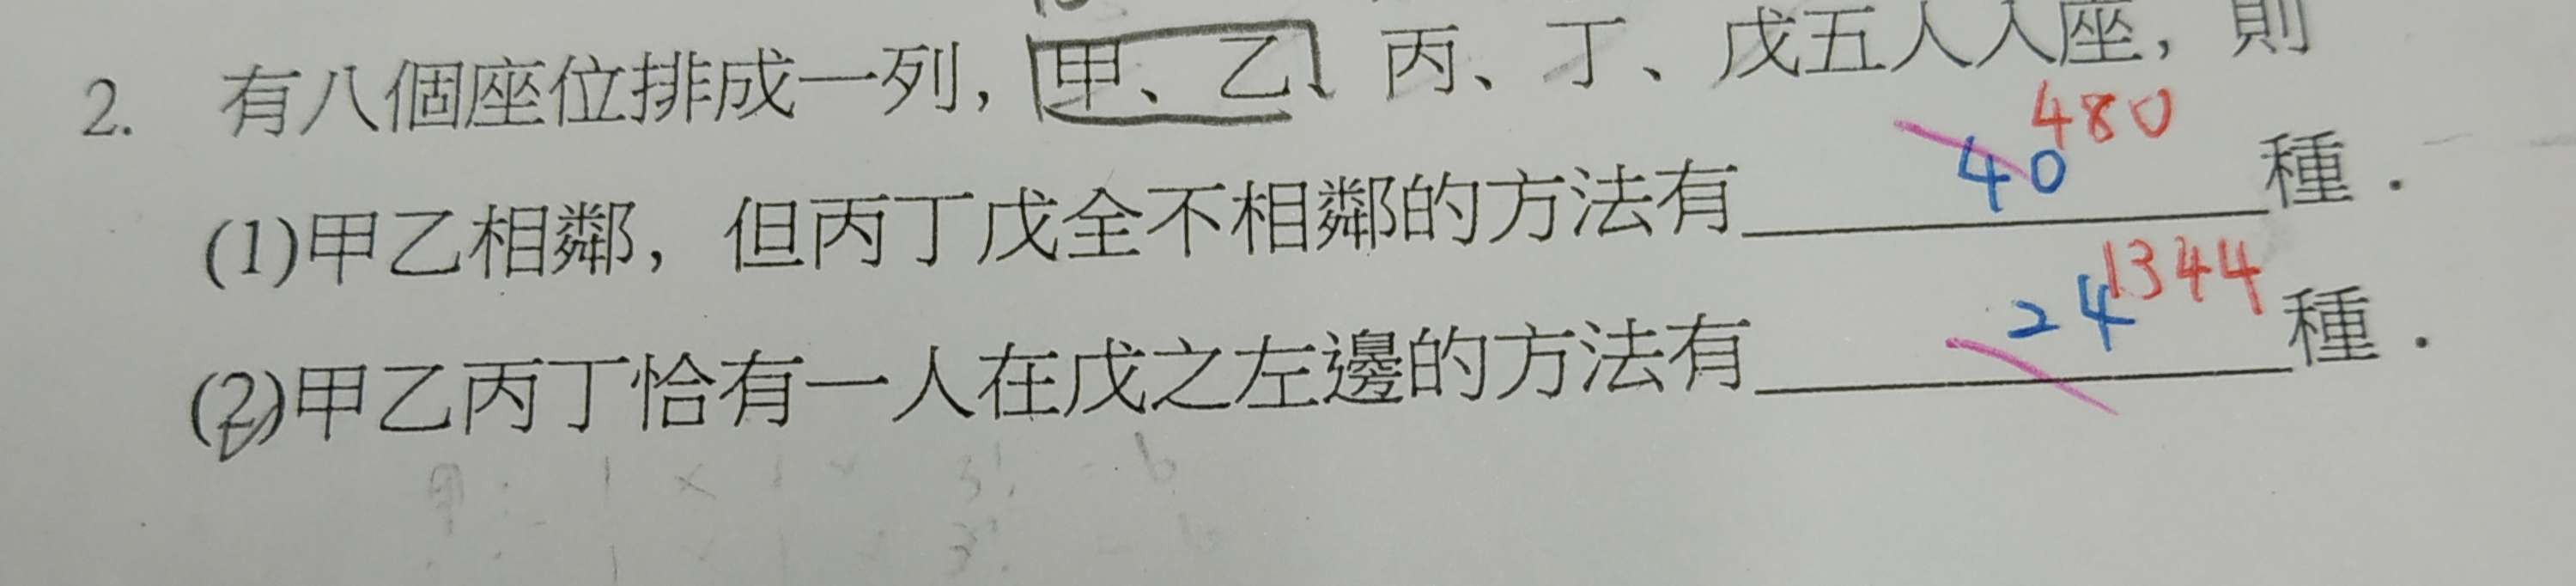 2. 有八個座位排成一列，甲、乙、丙、丁、戊五人入座，則
(1)甲乙相鄰，但丙丁戊全不相鄰的方法有 40 480 種．
(2)甲乙丙丁恰有一人在戊之左邊的方法有 24 1344 種．
1 × 1 × 3! = 6